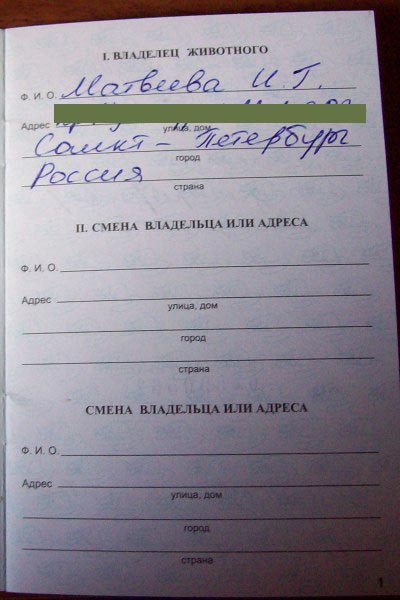 I. ВЛАДЕЛЕЦ ЖИВОТНОГО
Ф. И. О. Матвеева И. Г.
Адрес
улица, дом
Санкт-Петербург
город
Россия
страна
II. СМЕНА ВЛАДЕЛЬЦА ИЛИ АДРЕСА
Ф. И. О.
Адрес
улица, дом
город
страна
СМЕНА ВЛАДЕЛЬЦА ИЛИ АДРЕСА
Ф. И. О.
Адрес
улица, дом
город
страна
1